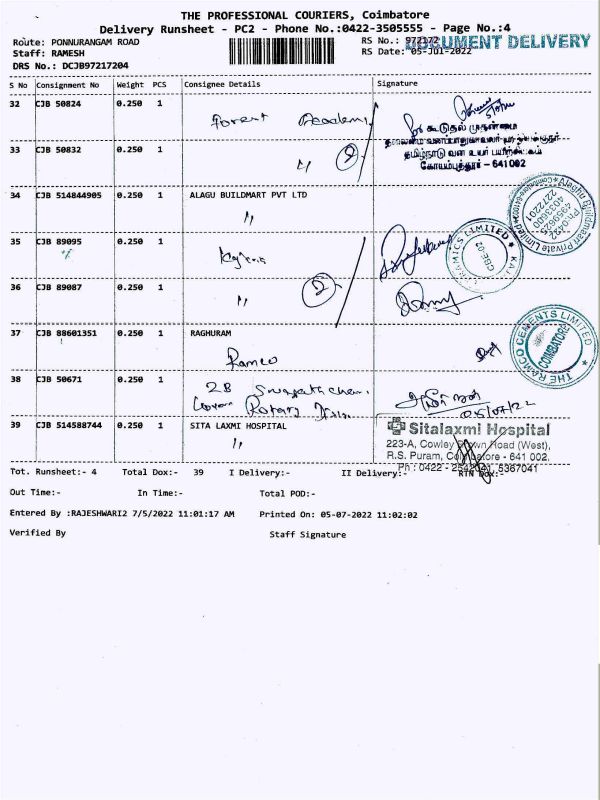 THE PROFESSIONAL COURIERS, Coimbatore
Delivery Runsheet - PC2 - Phone No.:0422-3505555 - Page No.:4
Route: PONNURANGAM ROAD
RS No.: 972172
DOCUMENT DELIVERY
Staff: RAMESH
RS Date: 05-Jul-2022
DRS No.: DCJB97217204
S No Consignment No Weight PCS Consignee Details Signature
32 CJB 50824 0.250 1
Forest Academi
கூடுதல் முதன்மை
தமிழ்நாடு வன உயர் பயிற்சியகம்
கோயம்புத்தூர் - 641002
33 CJB 50832 0.250 1
" 2
34 CJB 514844905 0.250 1 ALAGU BUILDMART PVT LTD
"
Alagu Buildmart Private Limited
35 CJB 89095 0.250 1
CBE-02
36 CJB 89087 0.250 1
" 2
37 CJB 88601351 0.250 1 RAGHURAM
Ramco
THE RAMCO CEMENTS LIMITED
COIMBATORE
38 CJB 50671 0.250 1
Rotary
05/07/22
39 CJB 514588744 0.250 1 SITA LAXMI HOSPITAL
"
Sitalaxmi Hospital
223-A, Cowley Brown Road (West),
R.S. Puram, Coimbatore - 641 002.
Ph : 0422 - 2542041, 5367041
Tot. Runsheet:- 4 Total Dox:- 39 I Delivery:- II Delivery:- RTN Dox:-
Out Time:- In Time:- Total POD:-
Entered By :RAJESHWARI2 7/5/2022 11:01:17 AM Printed On: 05-07-2022 11:02:02
Verified By Staff Signature